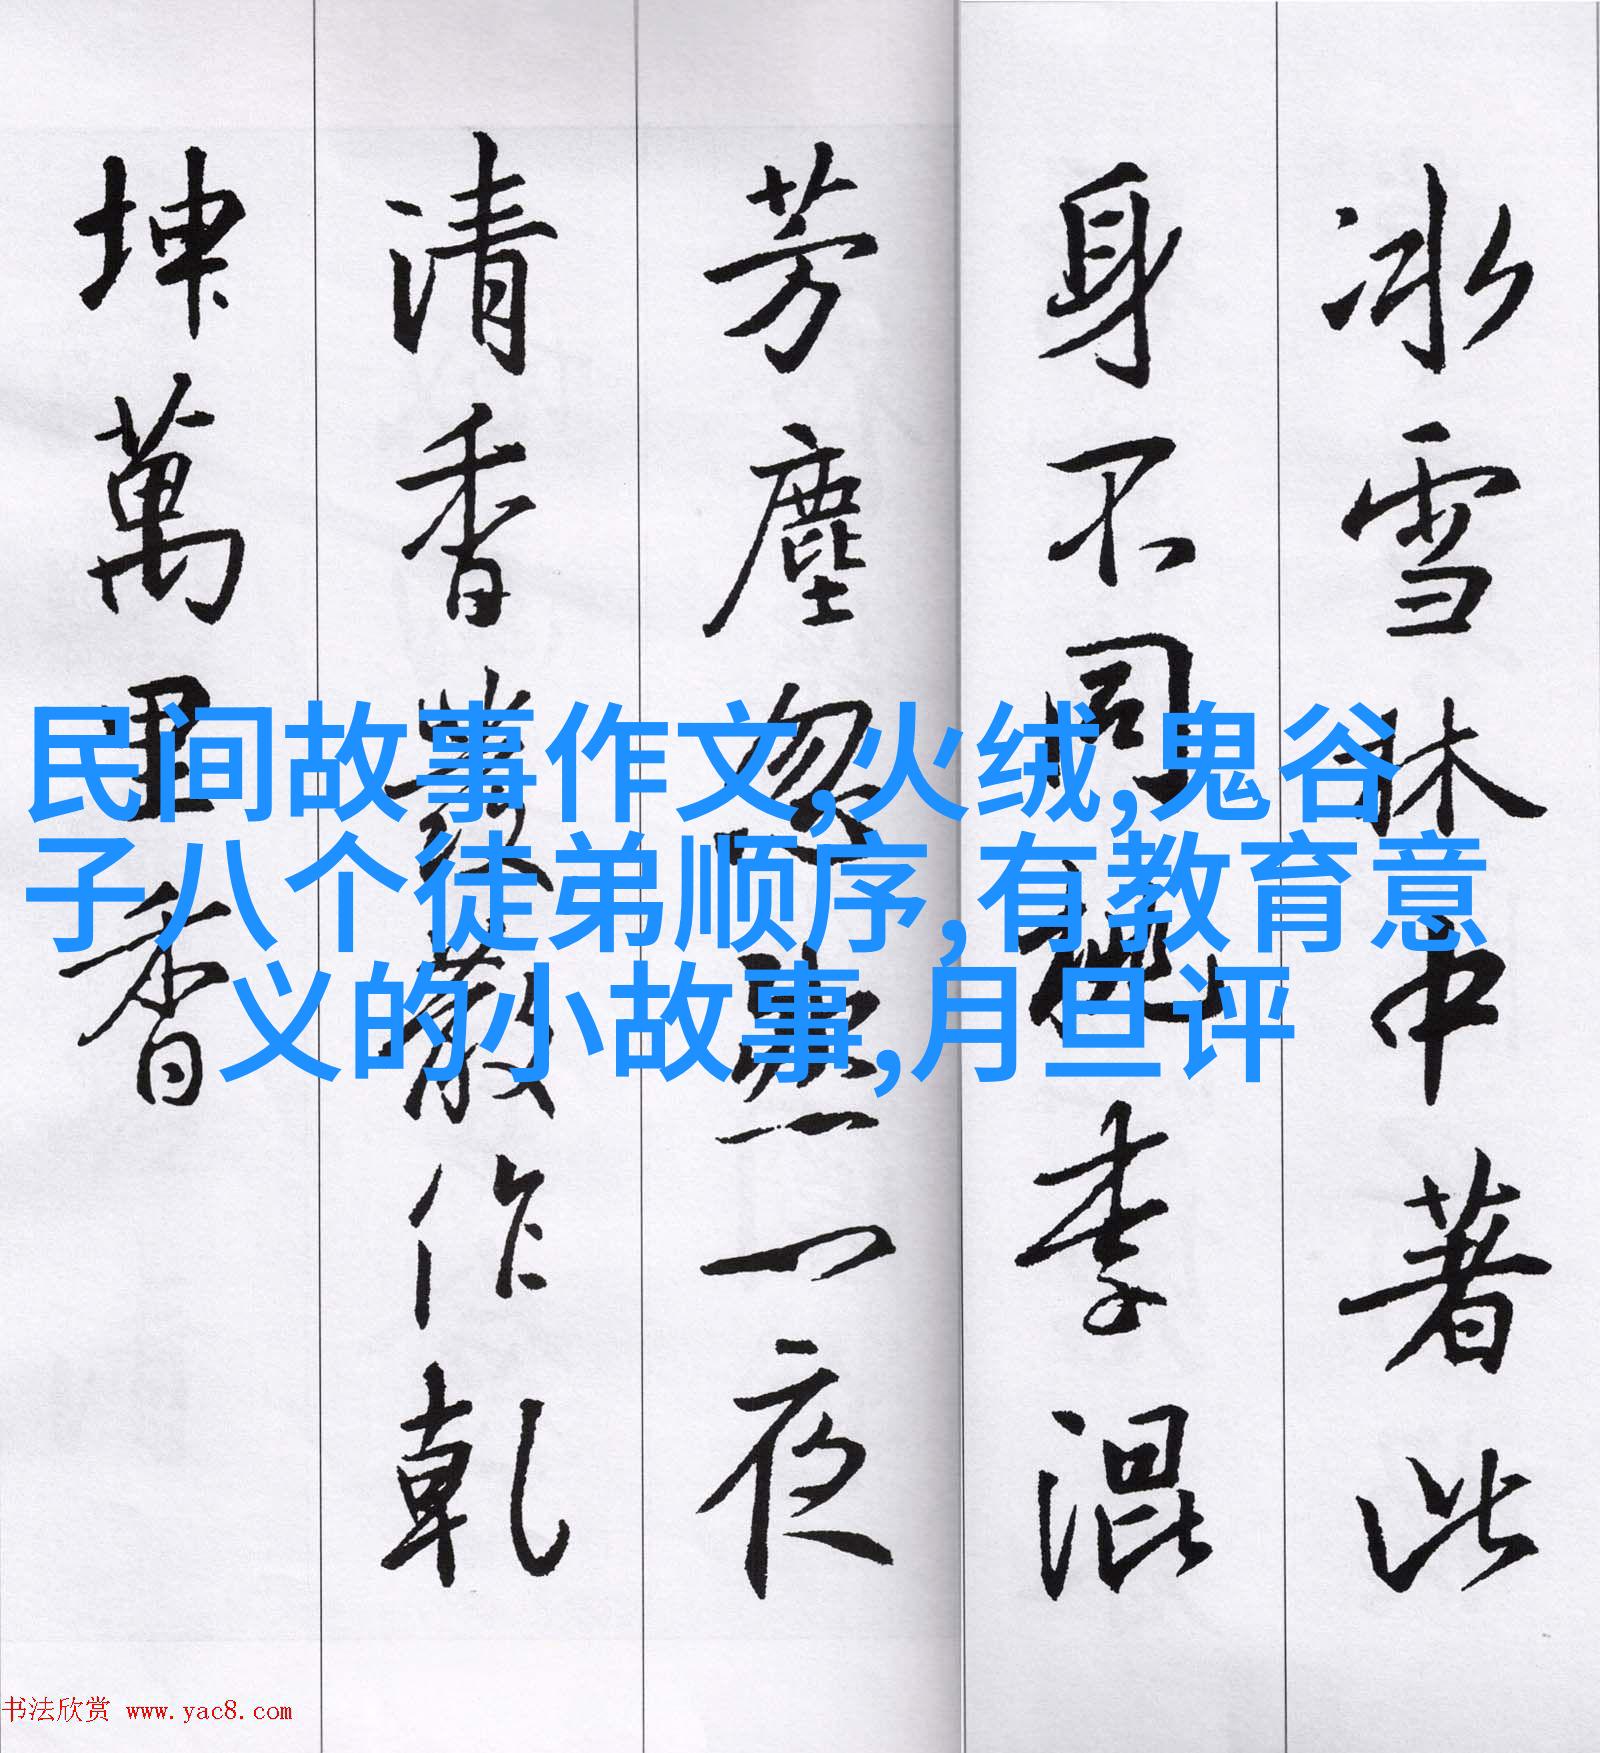 冰雪林中著此
身不同桃李混
芳塵忽然一夜
清香發散作乾
坤萬里香
民间故事作文,火绒,鬼谷
子八个徒弟顺序,有教育意
义的小故事,月旦评
书法欣赏 www.yac8.com